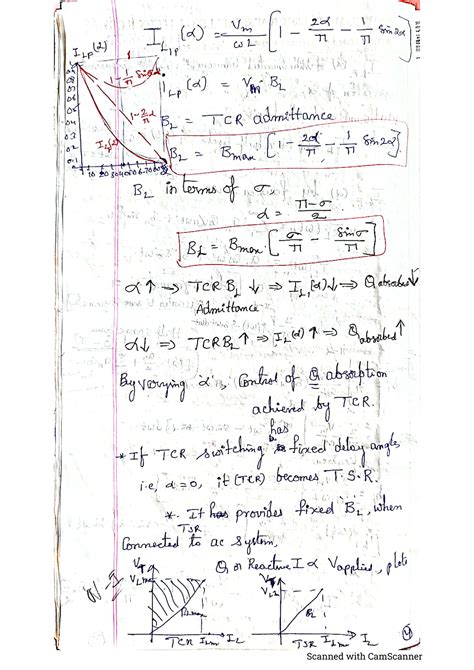 I_LP(α)
I_L1P (α) = Vm/ωL [1 − 2α/Π − 1/Π sin2α]
1 − 1/Π sin2α
1 − 2/Π α
I_LP (α) = Vm · B_L
B_L = TCR admittance
B_L = Bmax [1 − 2α/Π − 1/Π sin2α]
B_L in terms of σ
α = Π−σ/2
B_L = Bmax · [σ/Π − sinσ/Π]
α ↑ → TCR B_L ↓ ⇒ I_L1(α) ↓ ⇒ Q absorbed ↓
Admittance
α ↓ ⇒ TCR B_L ↑ ⇒ I_L(α) ↑ ⇒ Q absorbed ↑
By varying 'α', Control of Q absorption
achieved by TCR.
has
* If TCR switching fixed delay angles
i.e, α=0, it (TCR) becomes T.S.R.
*. It has provides fixed 'B_L', when
TSR
Connected to ac system,
Q or Reactive I α Vapplied, plots
V_T
V_Lm
B_Lmax
TCR I_Lm I_L
V_T
V_Lm
B_L
TSR I_Lm I_L
Scanned with CamScanner